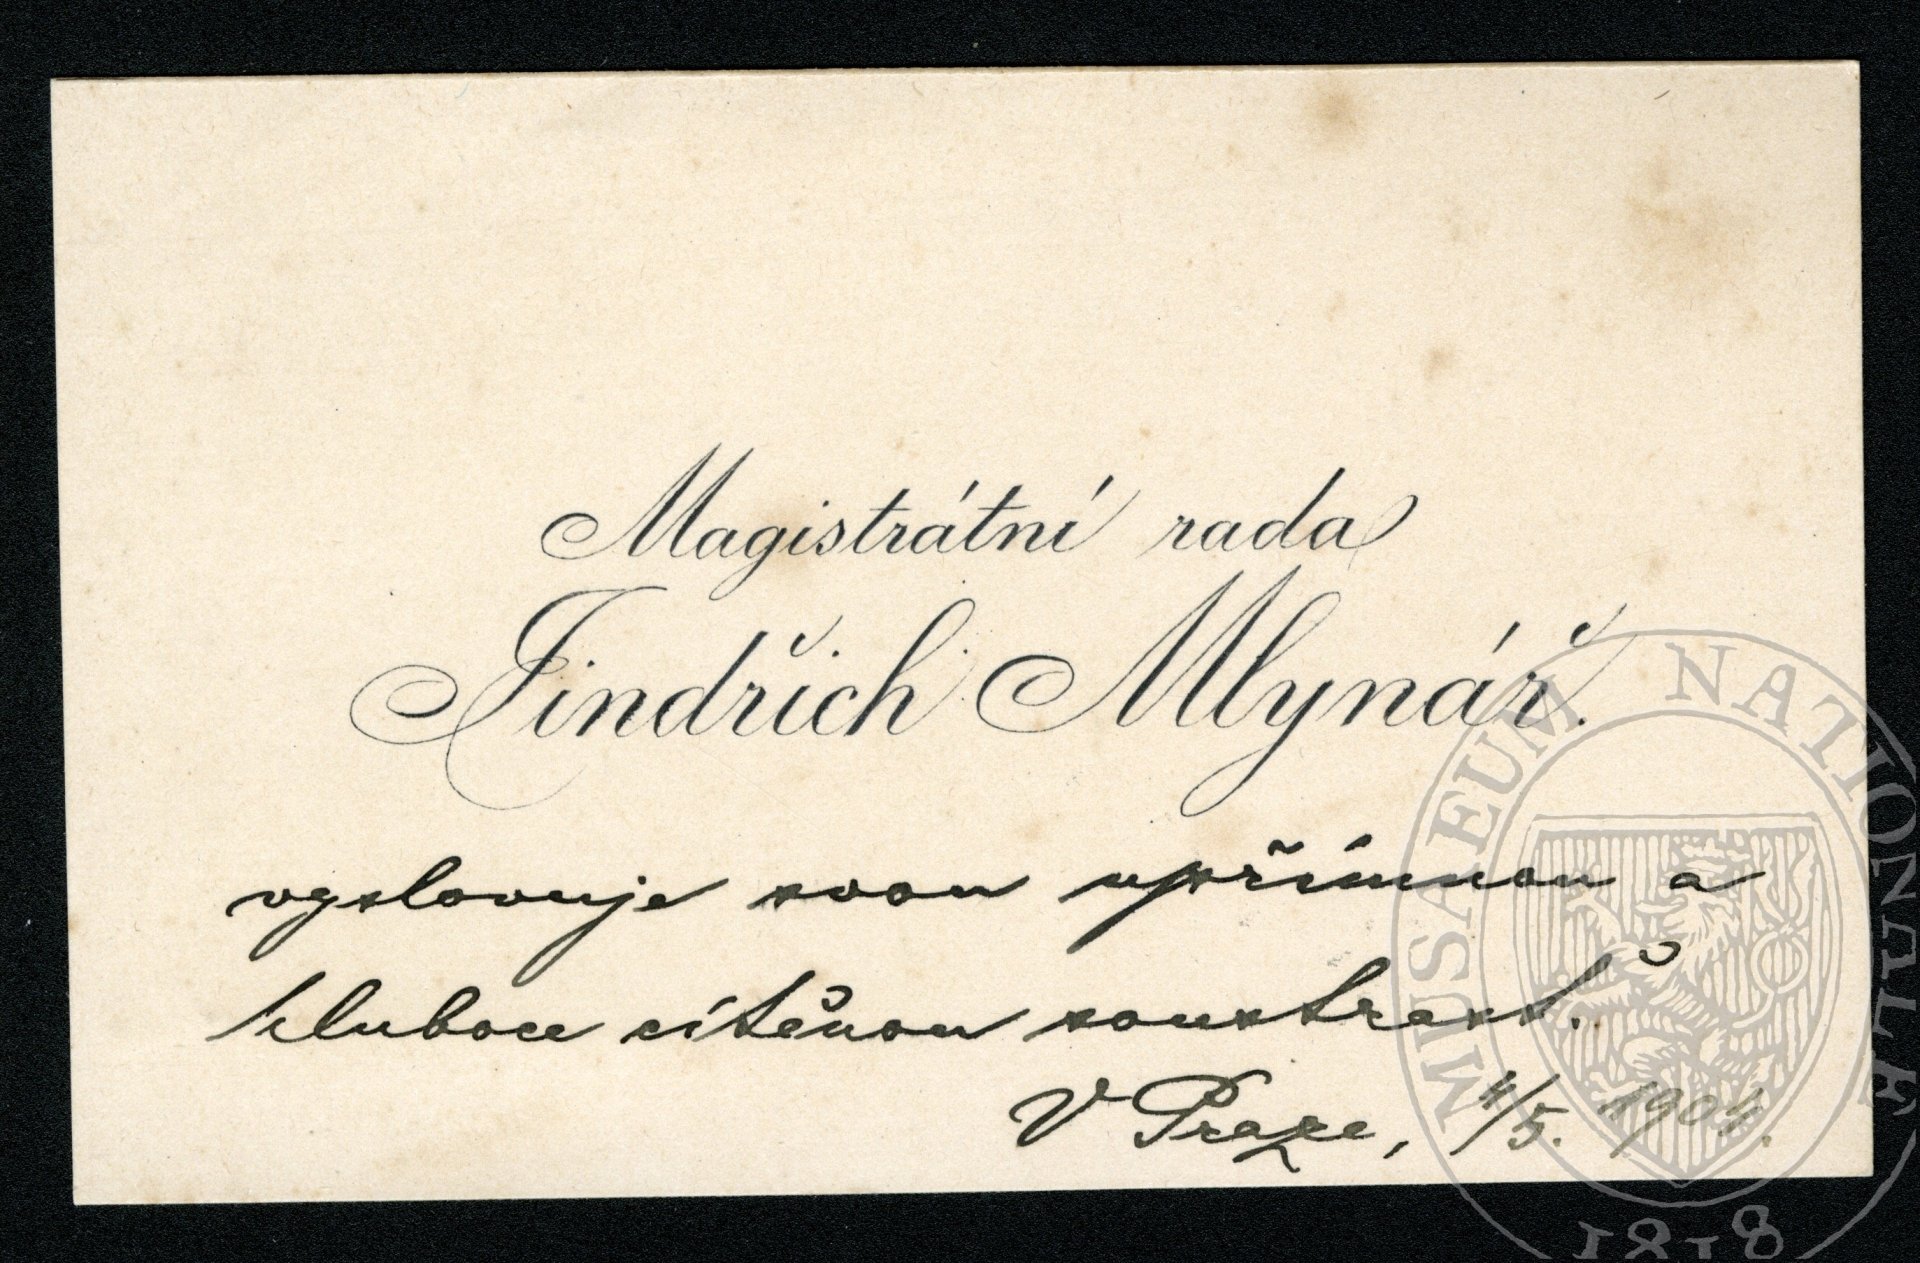 Magistrátní rada
Jindřich Mlynář.
vyslovuje svou upřímnou a
hluboce cítěnou soustrast.
V Praze, 4/5. 1904.
MUSAEUM NATIONALE
1818